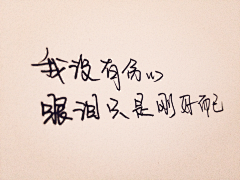 我没有伤心
眼泪只是刚好而已